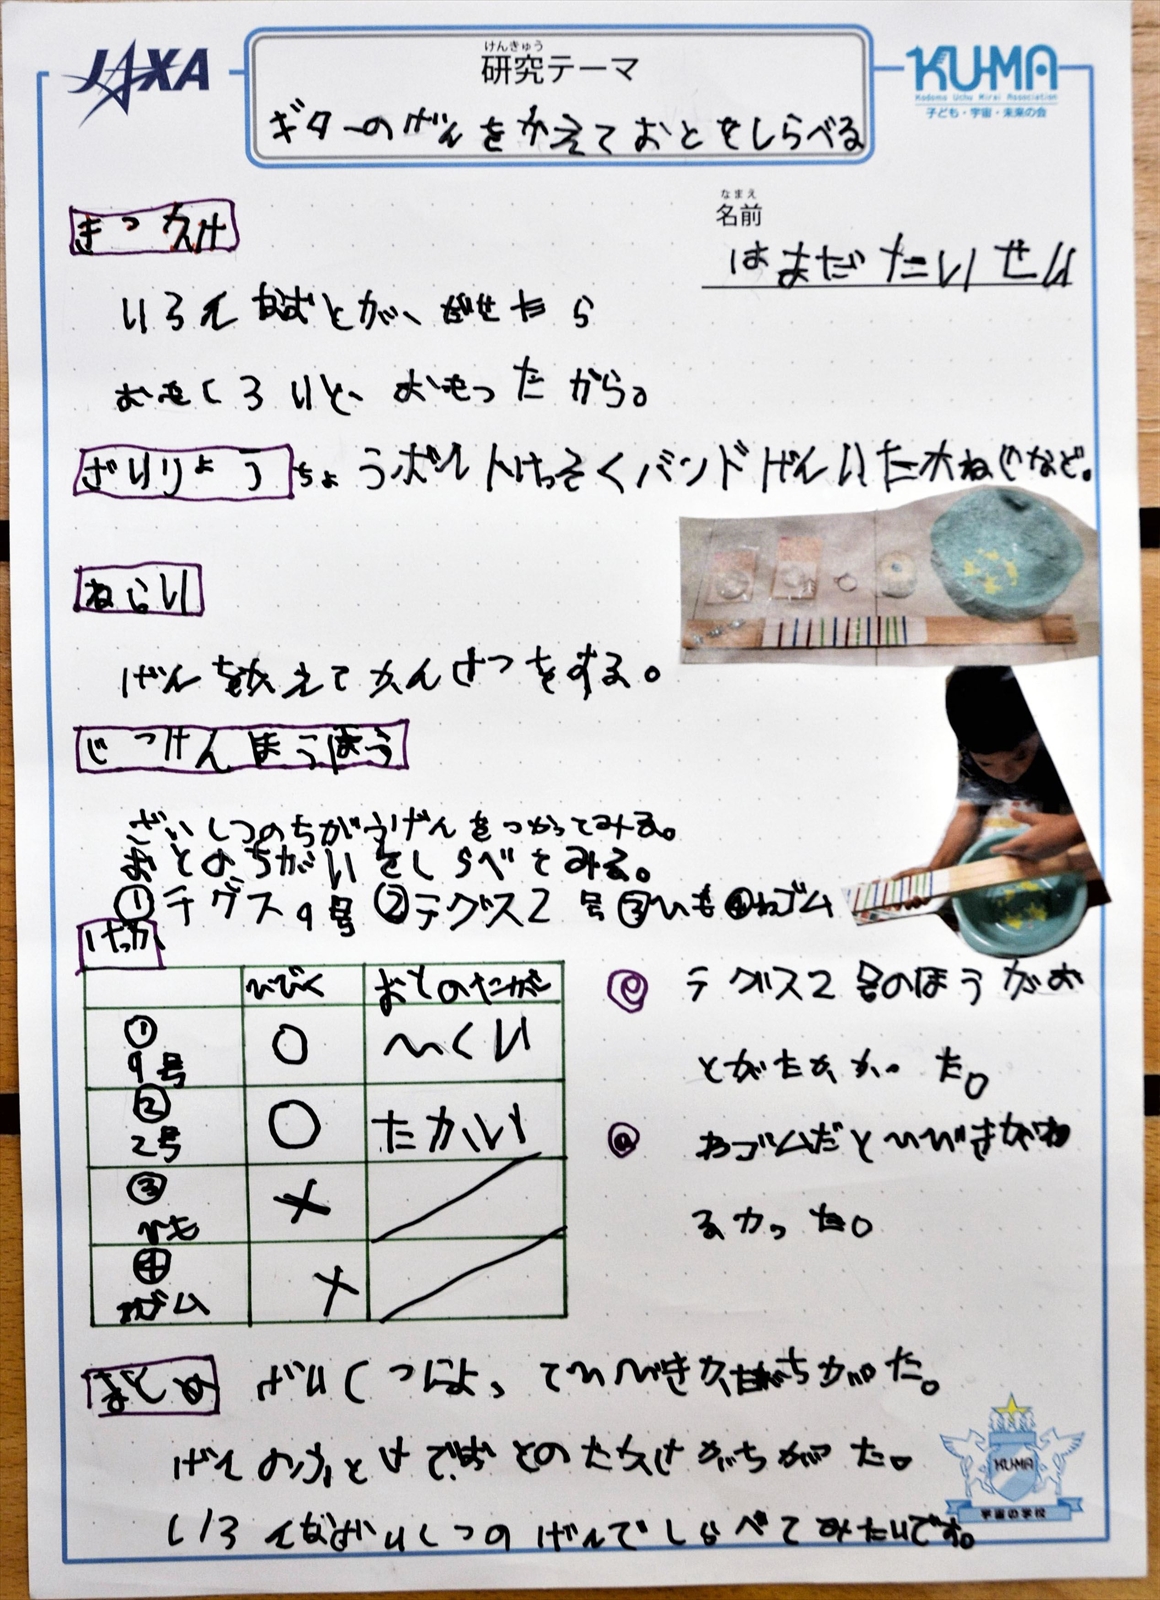 JAXA
けんきゅう
研究テーマ
KU-MA
Kodomo Uchu Mirai Association
子ども・宇宙・未来の会
ギターのげんをかえておとをしらべる
なまえ
名前
はまだたいせい
きっかけ
いろんなおとが、だせたら
おもしろいと、おもったから。
ざいりょう ちょうボルトけっそくバンドげんいた木ねじなど。
ねらい
げんをかえてかんさつをする。
じっけんほうほう
ざいしつのちがうげんをつかってみる。
おとのちがいをしらべてみる。
①テグス9号 ②テグス2号 ③ひも ④わゴム
けっか
ひびく おとのたかさ
① 9号 ○ ひくい
② 2号 ○ たかい
③ ひも ×
④ わゴム ×
テグス2号のほうがお
とがたかかった。
わゴムだとひびきがわ
るかった。
まとめ ざいしつによってひびきかたがちがった。
げんのふとさでおとのたかさがちがった。
いろんなざいしつのげんでしらべてみたいです。
KU-MA
宇宙の学校